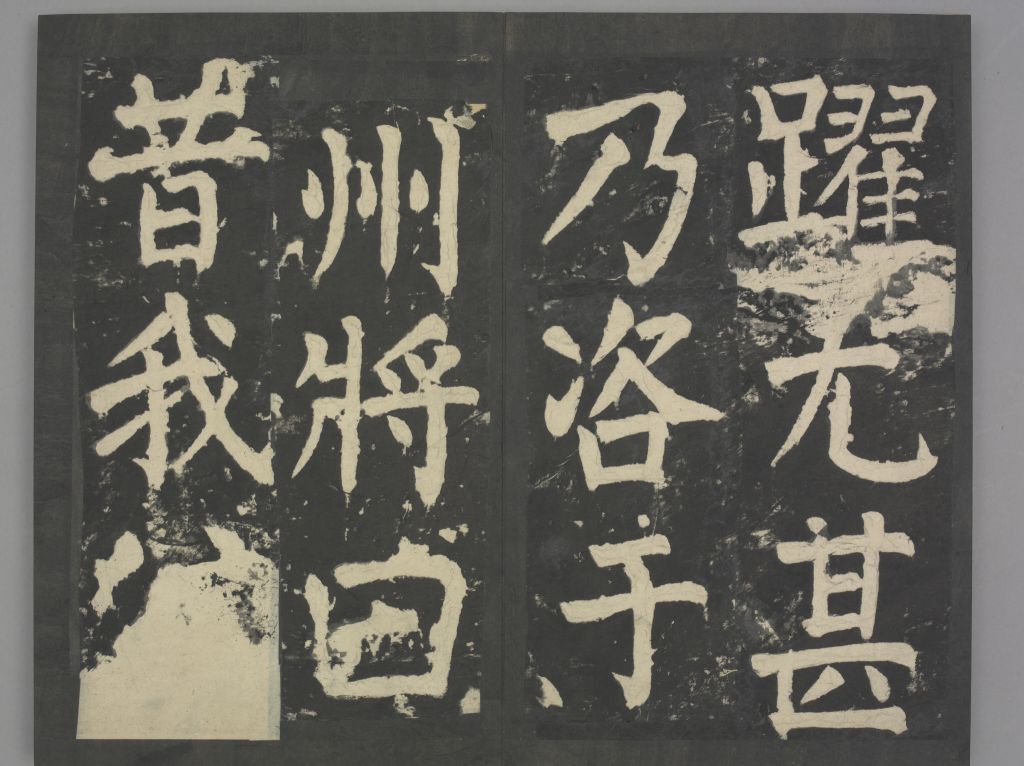 躍尤甚
乃洛于
州將曰
昔我